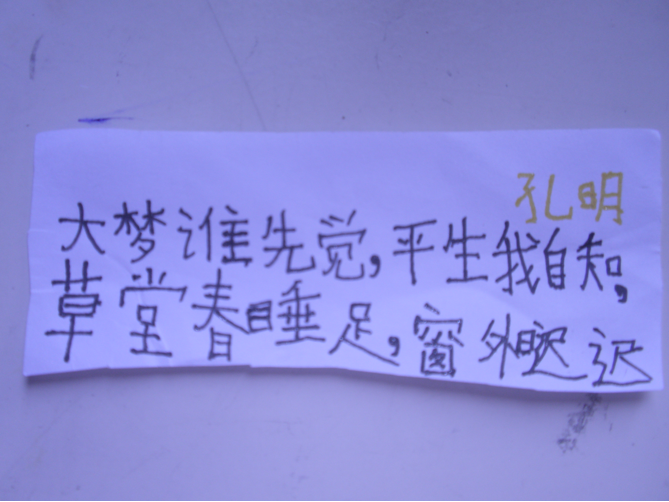 孔明
大梦谁先觉,平生我自知,
草堂春睡足,窗外日迟迟